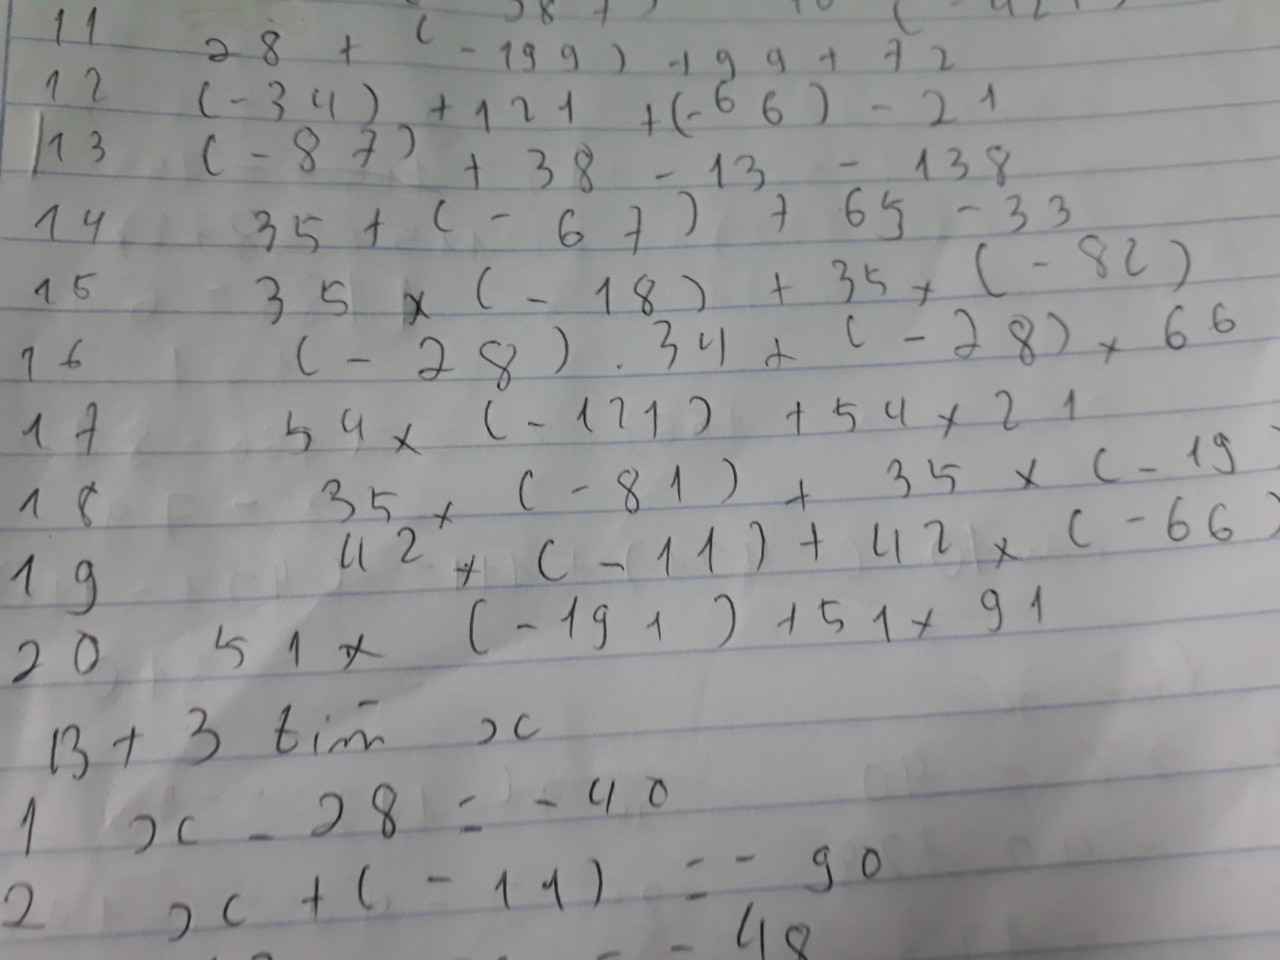 11 28 + (-199) + 99 + 72
12 (-34) + 121 + (-66) - 21
13 (-87) + 38 - 13 - 138
14 35 + (-67) + 65 - 33
15 35 x (-18) + 35 x (-82)
16 (-28) . 34 + (-28) x 66
17 54 x (-121) + 54 x 21
18 35 x (-81) + 35 x (-19
19 42 x (-11) + 42 x (-66)
20 51 x (-191) + 51 x 91
Bt 3 tìm x
1 x - 28 = -40
2 x + (-11) = -90
= -48